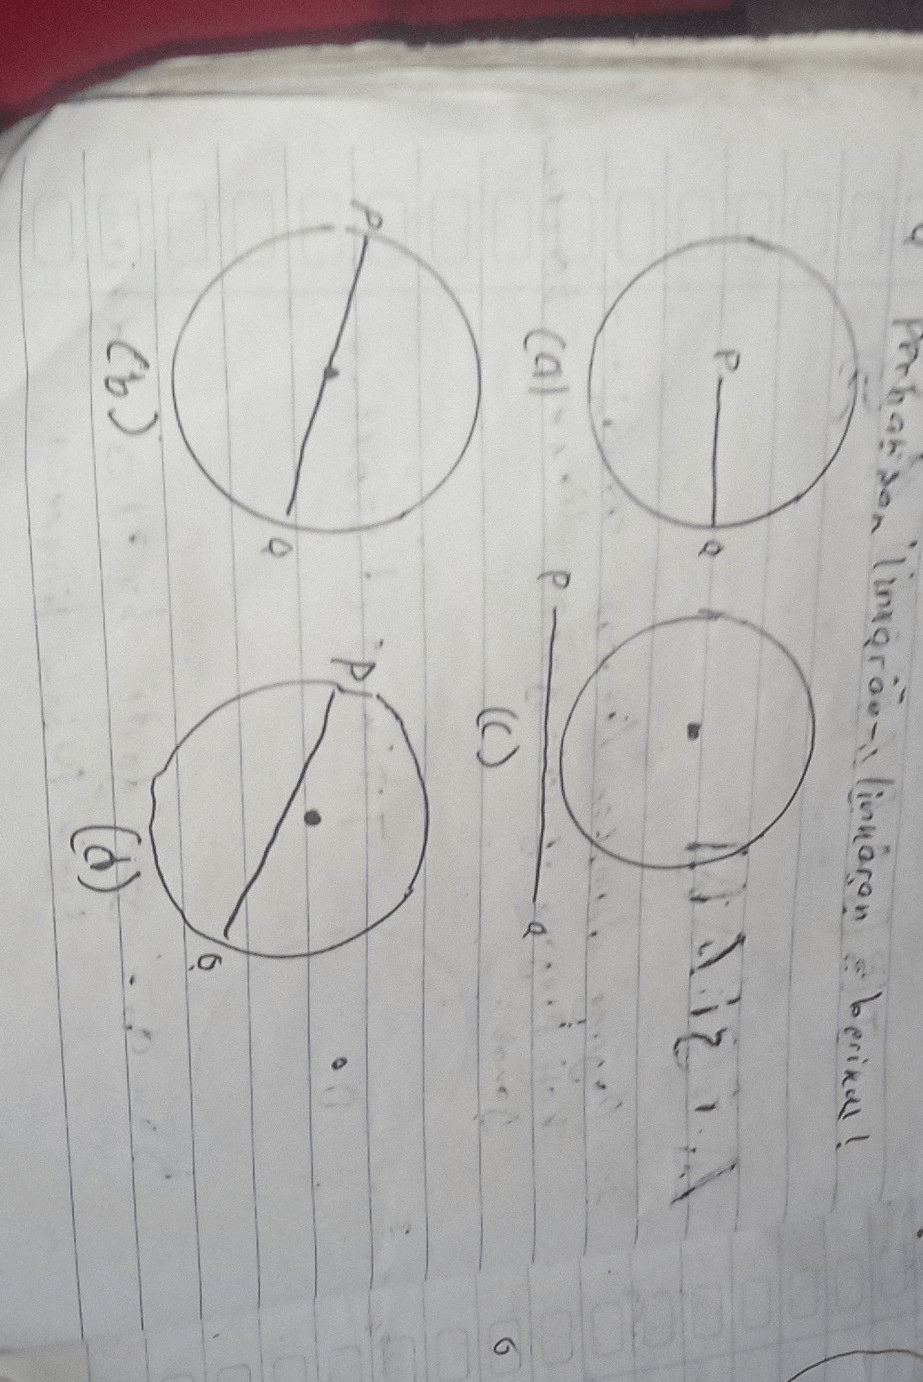 4 Perhatikan lingkaran-lingkaran berikut!
P Q
(a)
P Q
(c)
P
Q
(b)
P
Q
(d)